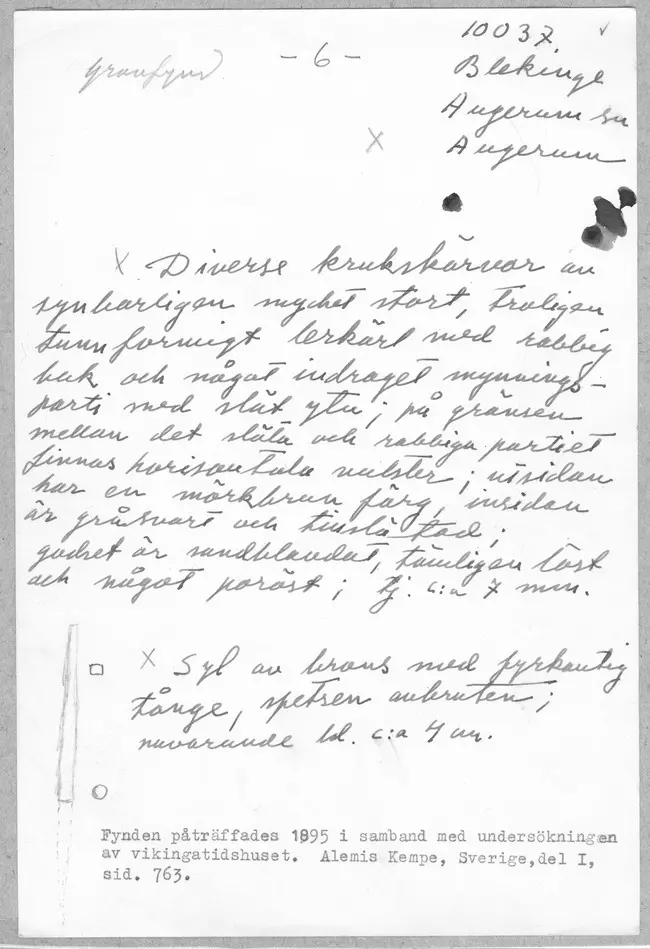 10037
gravfynd - 6 -
Blekinge
Augerum sn
Augerum
X
X Diverse krukskärvor av
synbarligen mycket stort, troligen
tunnformigt lerkärl med rabbig
buk och något indraget mynnings-
parti med slät yta; på gränsen
mellan det släta och rabbiga partiet
finnas horisontala valster; utsidan
har en mörkbrun färg, insidan
är gråsvart och finslätad;
godset är sandblandat, tämligen löst
och något poröst; tj. c:a 7 mm.
X Syl av brons med fyrkantig
tånge, spetsen avbruten;
nuvarande ld. c:a 4 cm.
Fynden påträffades 1895 i samband med undersökningen
av vikingatidshuset. Alemis Kempe, Sverige,del I,
sid. 763.